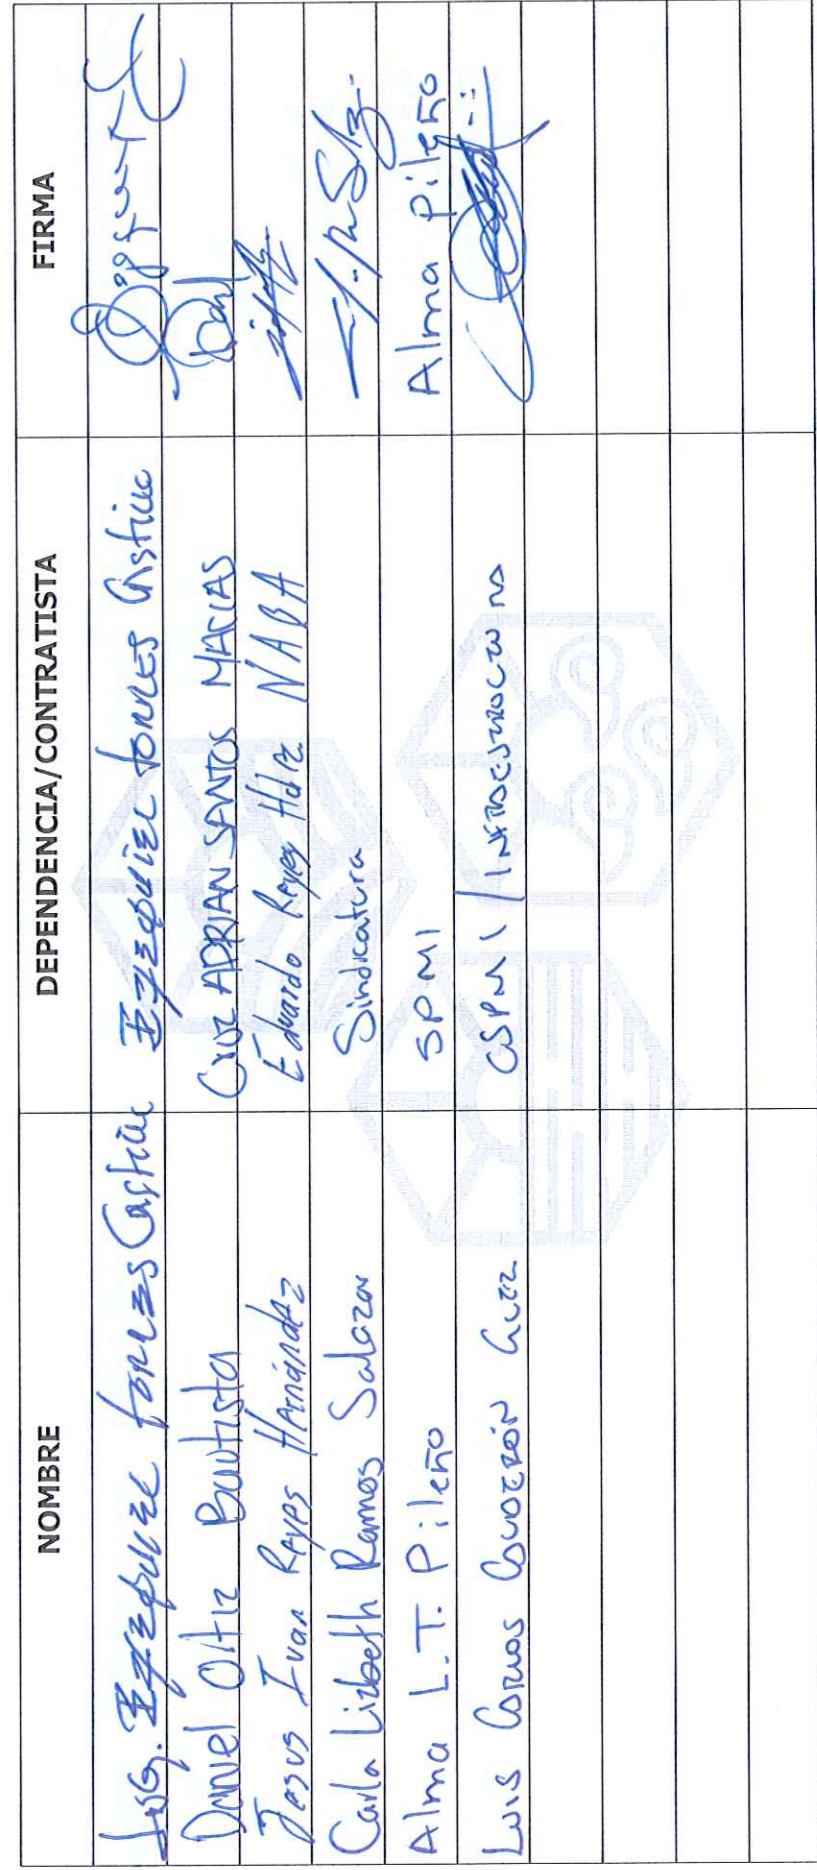 NOMBRE DEPENDENCIA/CONTRATISTA FIRMA
ING. EZEQUIEL TORRES Castillo EZEQUIEL TORRES Castillo
Daniel Ortiz Bautista CRUZ ADRIAN SANTOS MACIAS
Jesus Ivan Reyes Hernández Eduardo Reyes Hdrz NABA
Carla Lizbeth Ramos Salazar Sindicatura
Alma L.T. Pileño SPMI Alma Pileño
LUIS CARLOS CALDERÓN CRUZ